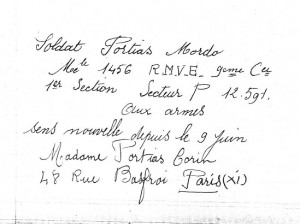 Soldat Portias Mordo
Mle 1456 R.M.V.E. 9eme Cie
1er Section Secteur P 12.591.
aux armes
sens nouvelle depuis le 9 juin
Madame Portias Corin
48 Rue Basfroi Paris (XI)